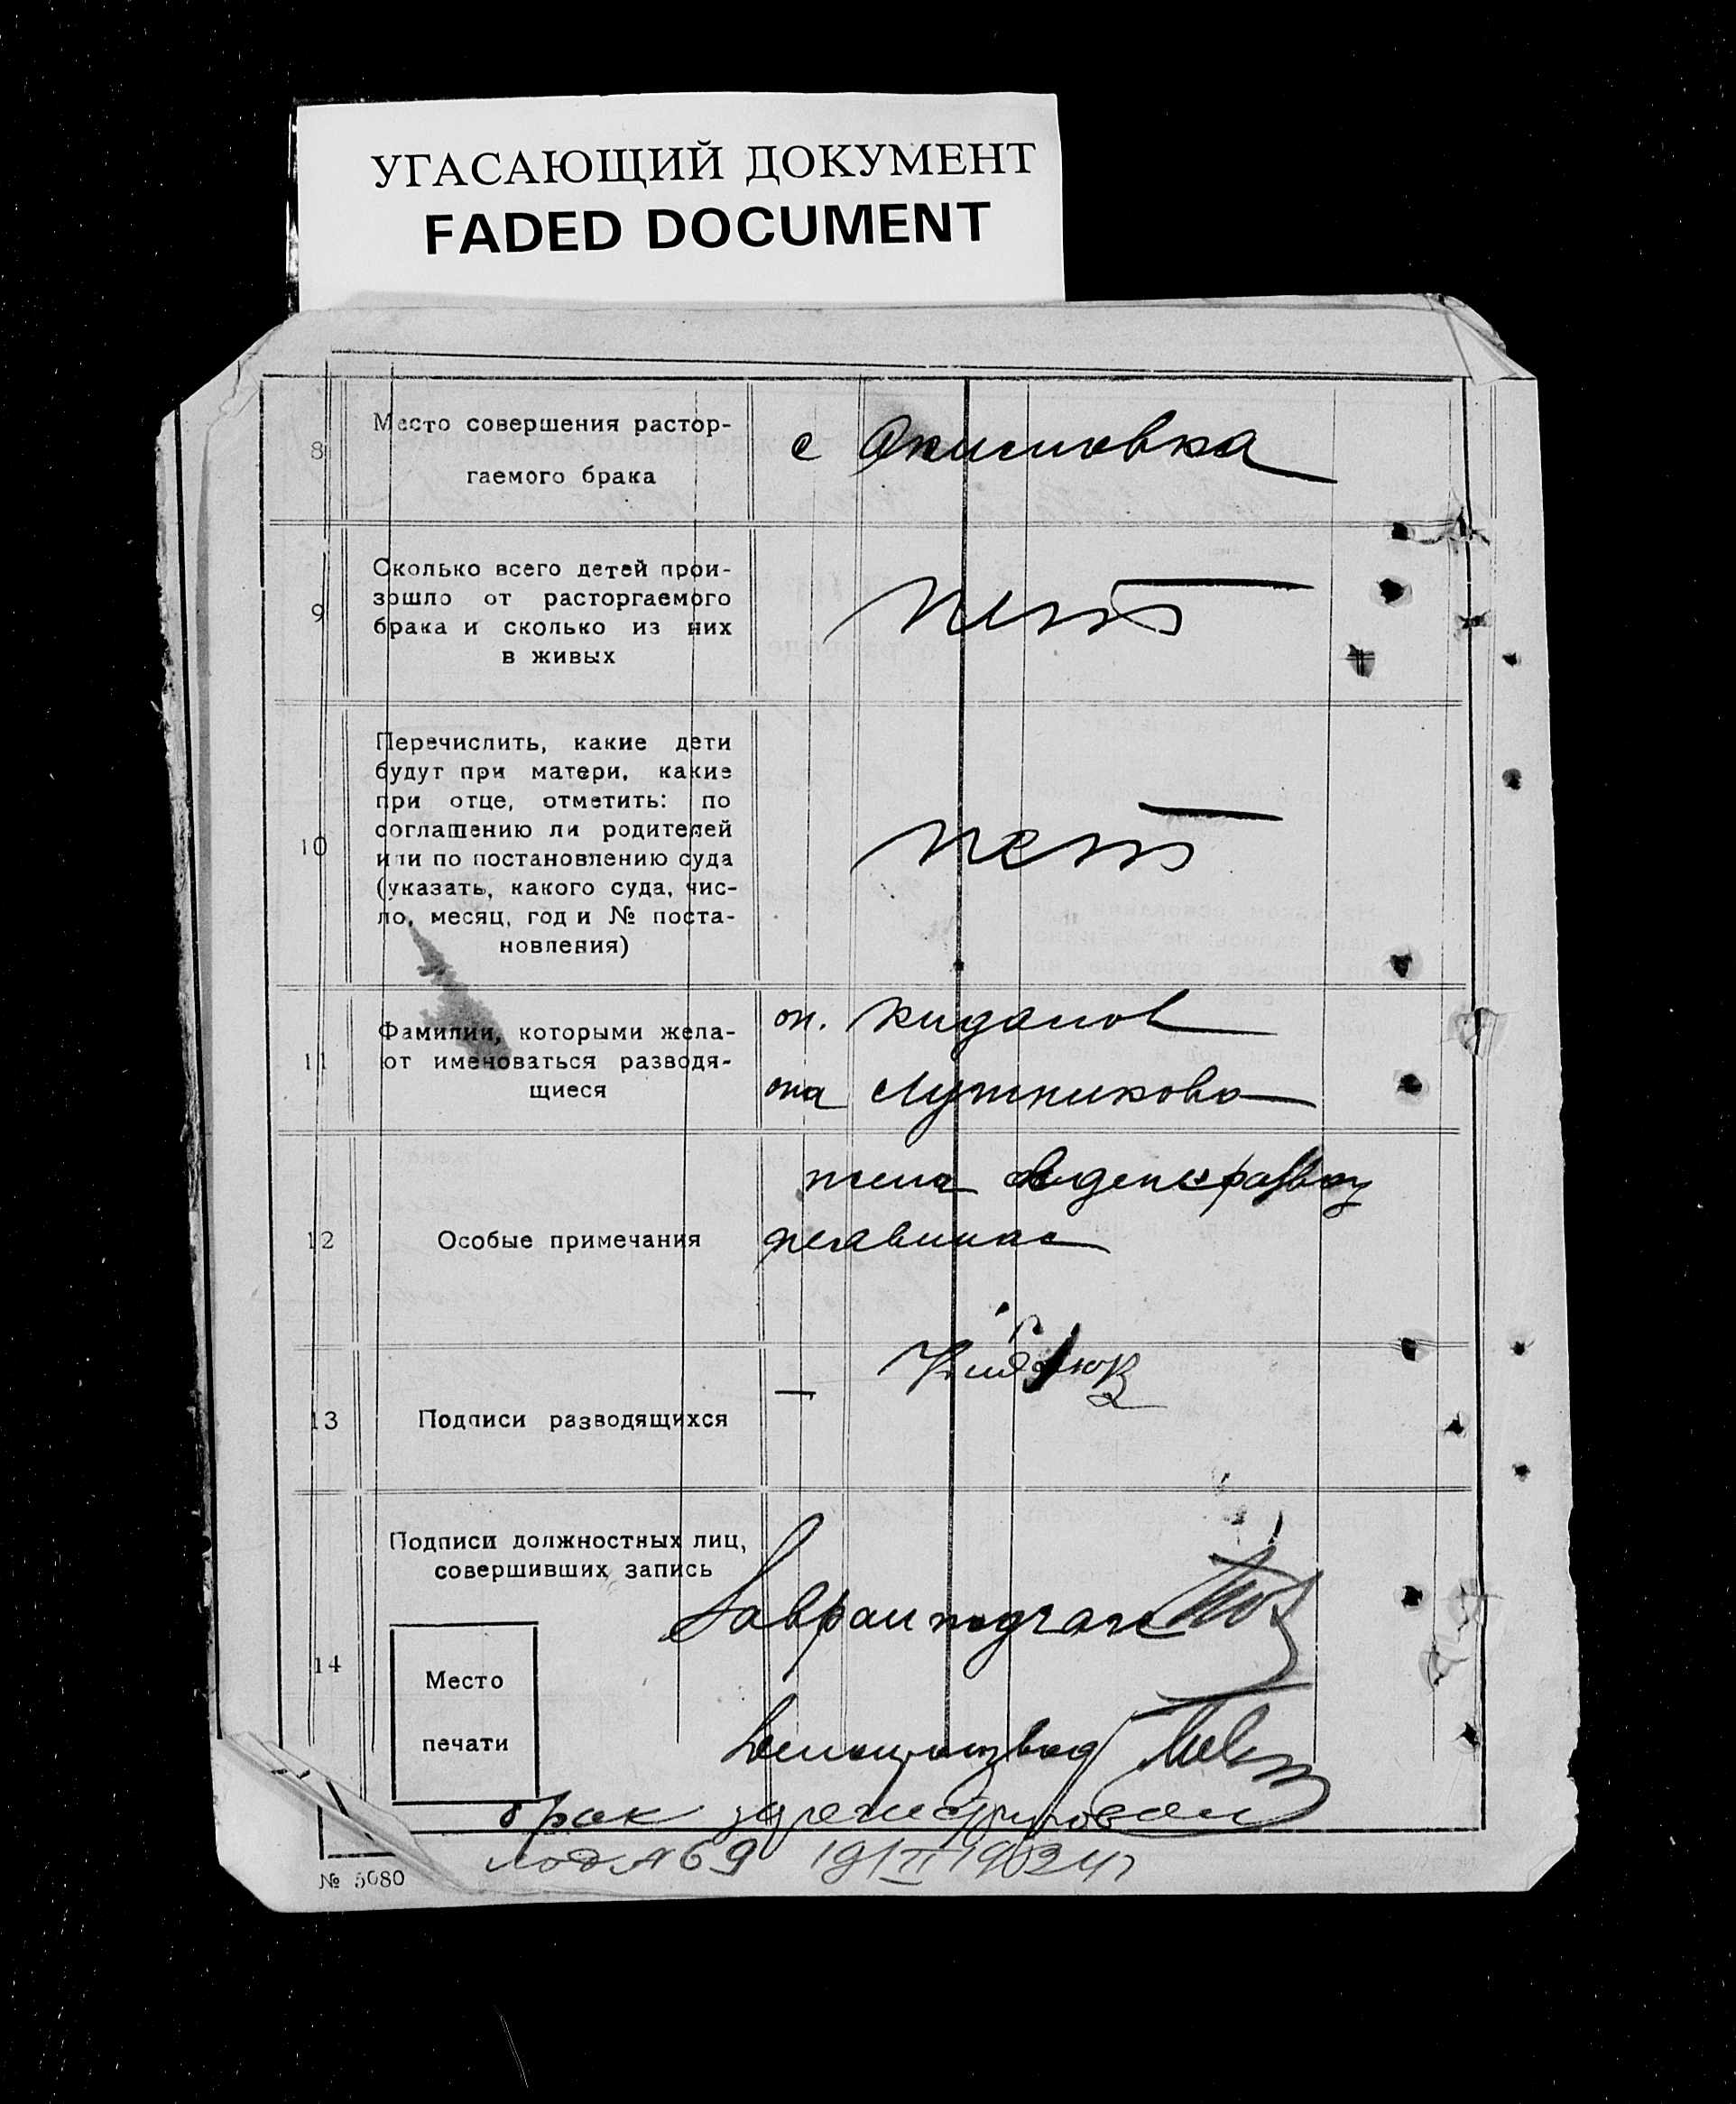 УГАСАЮЩИЙ ДОКУМЕНТ
FADED DOCUMENT
8
Место совершения растор-
гаемого брака
с Акимовка
9
Сколько всего детей прои-
зошло от расторгаемого
брака и сколько из них
в живых
нет
10
Перечислить, какие дети
будут при матери, какие
при отце, отметить: по
соглашению ли родителей
или по постановлению суда
(указать, какого суда, чис-
ло, месяц, год и № поста-
новления)
нет
11
Фамилии, которыми жела-
ют именоваться разводя-
щиеся
он.
она Лутникова
12
Особые примечания
жена
не явилась
13
Подписи разводящихся
14
Подписи должностных лиц,
совершивших запись
Место
печати
Делопроизвод
брак зарегистрирован
под № 69 19/II 1934 г
№ 5080